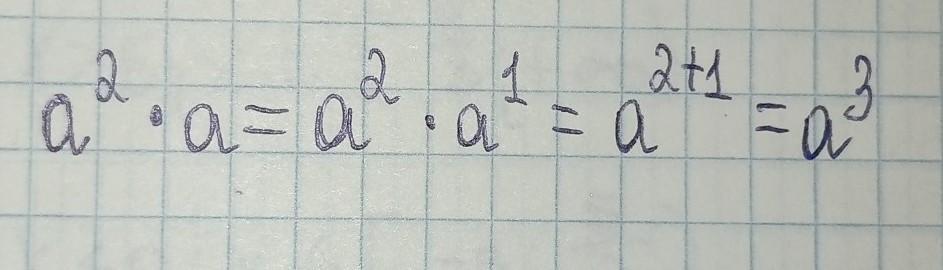 a² · a = a² · a¹ = a²⁺¹ = a³